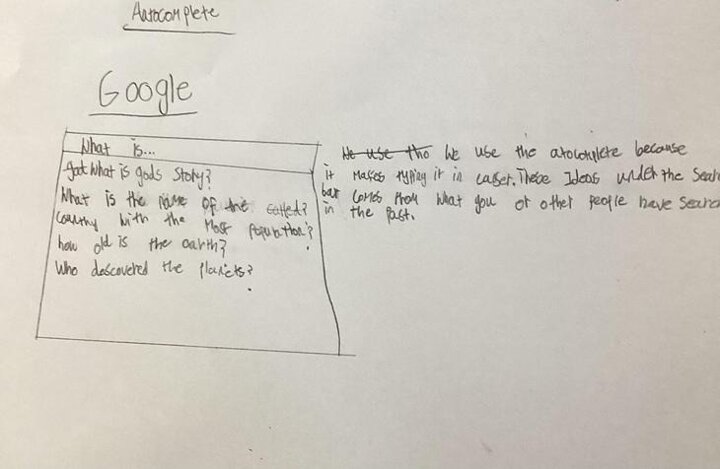 Autocomplete
Google
What is...
What is gods story?
What is the name of the called?
country with the most population?
how old is the earth?
Who descovered the planets?
We use the We use the atocomplete because
it makes typing it in easer. These Ideas under the Sear
bar comes from what you or other people have Search
in the past.